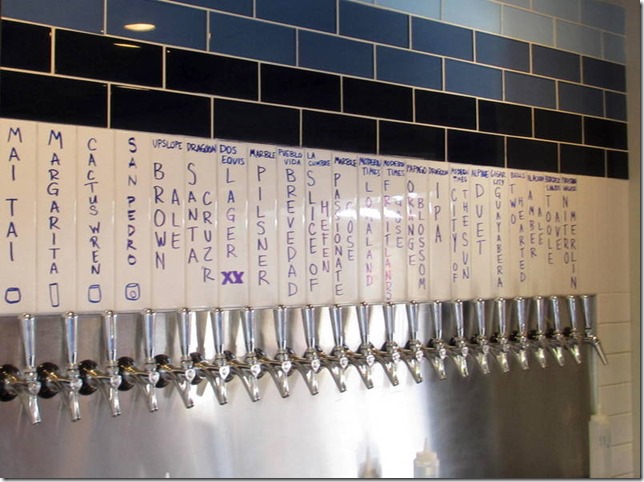 MAI TAI
MARGARITA
CACTUS WREN
SAN PEDRO
UPSLOPE
BROWN
ALE
DRAGOON
SANTA
CRUZR
DOS
EQUIS
LAGER
XX
MARBLE
PILSNER
PUEBLO
VIDA
BREVEDAD
LA
CUMBRE
SLICE OF
HEFEN
MARBLE
PASSIONATE
GOSE
MODERN
TIMES
LOMALAND
MODERN
TIMES
FRUITLANDS
GOSE
PAPAGO
ORANGE
BLOSSOM
DRAGOON
IPA
MODERN
TIMES
CITY OF
THE SUN
ALPINE
DUET
CIGAR
CITY
GUAYABERA
BELLS
TWO
HEARTED
ALASKAN
AMBER
ALE
TOOLE
AVE
NITRO
MERLIN